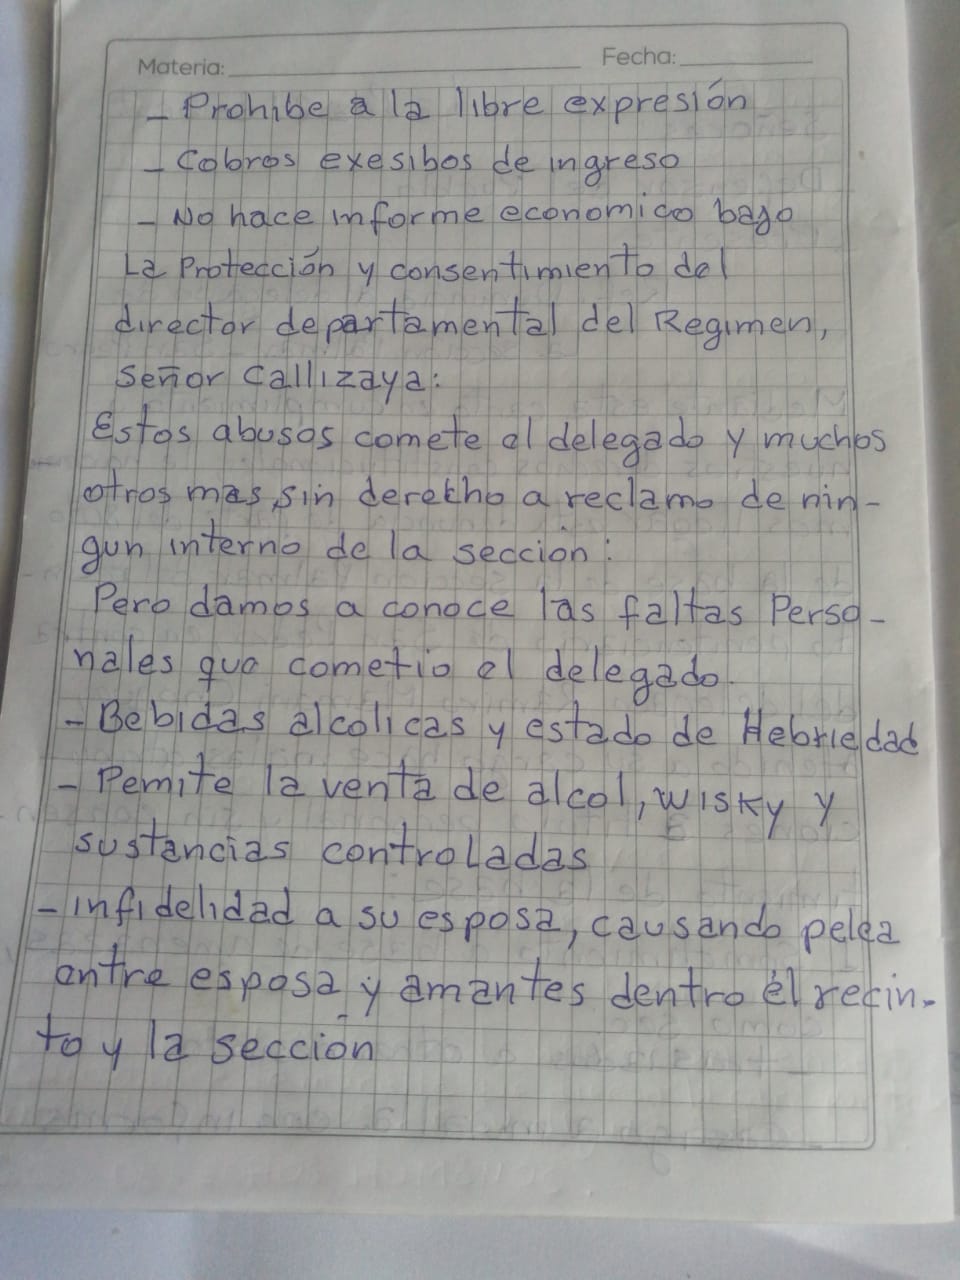 Materia: Fecha:
- Prohibe a la libre expresión
- Cobros exesibos de ingreso
- No hace informe economico bago
La Protección y consentimiento del
director departamental del Regimen,
Señor Callizaya:
Estos abusos comete el delegado y muchos
otros mas sin derecho a reclamo de nin-
gun interno de la sección:
Pero damos a conoce las faltas Perso-
nales que cometio el delegado.
- Bebidas alcolicas y estado de Hebriedad
- Pemite la venta de alcol, wisky y
sustancias controladas
- infidelidad a su esposa, causando pelea
entre esposa y amantes dentro él recin-
to y la sección